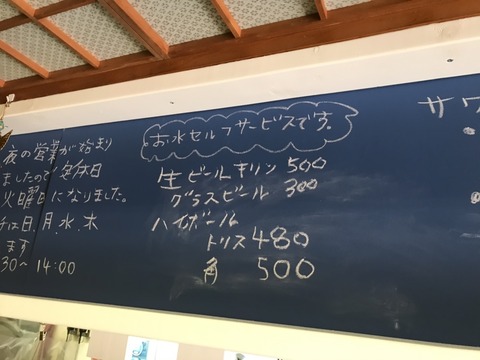 夜の営業が始まり
ましたので 定休日
火曜日になりました。
チは日、月、水、木
ます
30〜14:00
お水セルフサービスです。
生ビールキリン 500
グラスビール 300
ハイボール
トリス 480
角 500
サワ